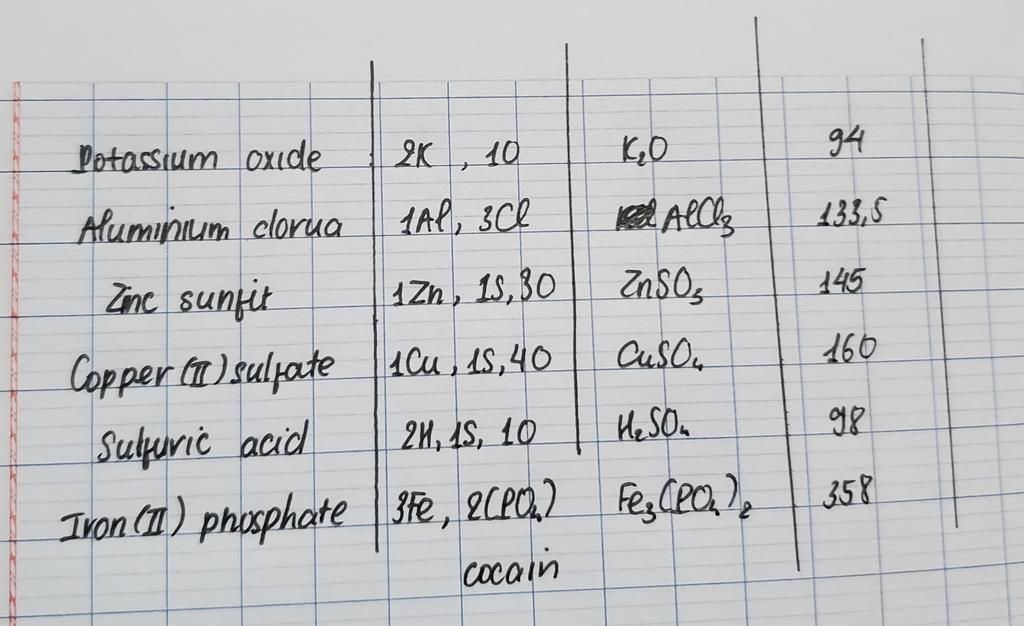 Potassium oxide 2K , 1O K₂O 94
Aluminium clorua 1Al, 3Cl AlCl₃ 133,5
Zinc sunfit 1Zn, 1S, 3O ZnSO₃ 145
Copper (II) sulfate 1Cu, 1S, 4O CuSO₄ 160
Sulfuric acid 2H, 1S, 1O H₂SO₄ 98
Iron (II) phosphate 3Fe, 2(PO₄) Fe₃(PO₄)₂ 358
cocain